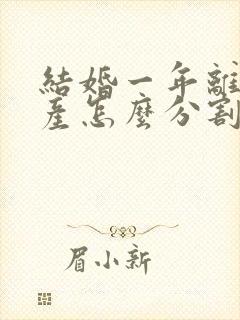 結婚一年離
産怎麼分割
眉小新